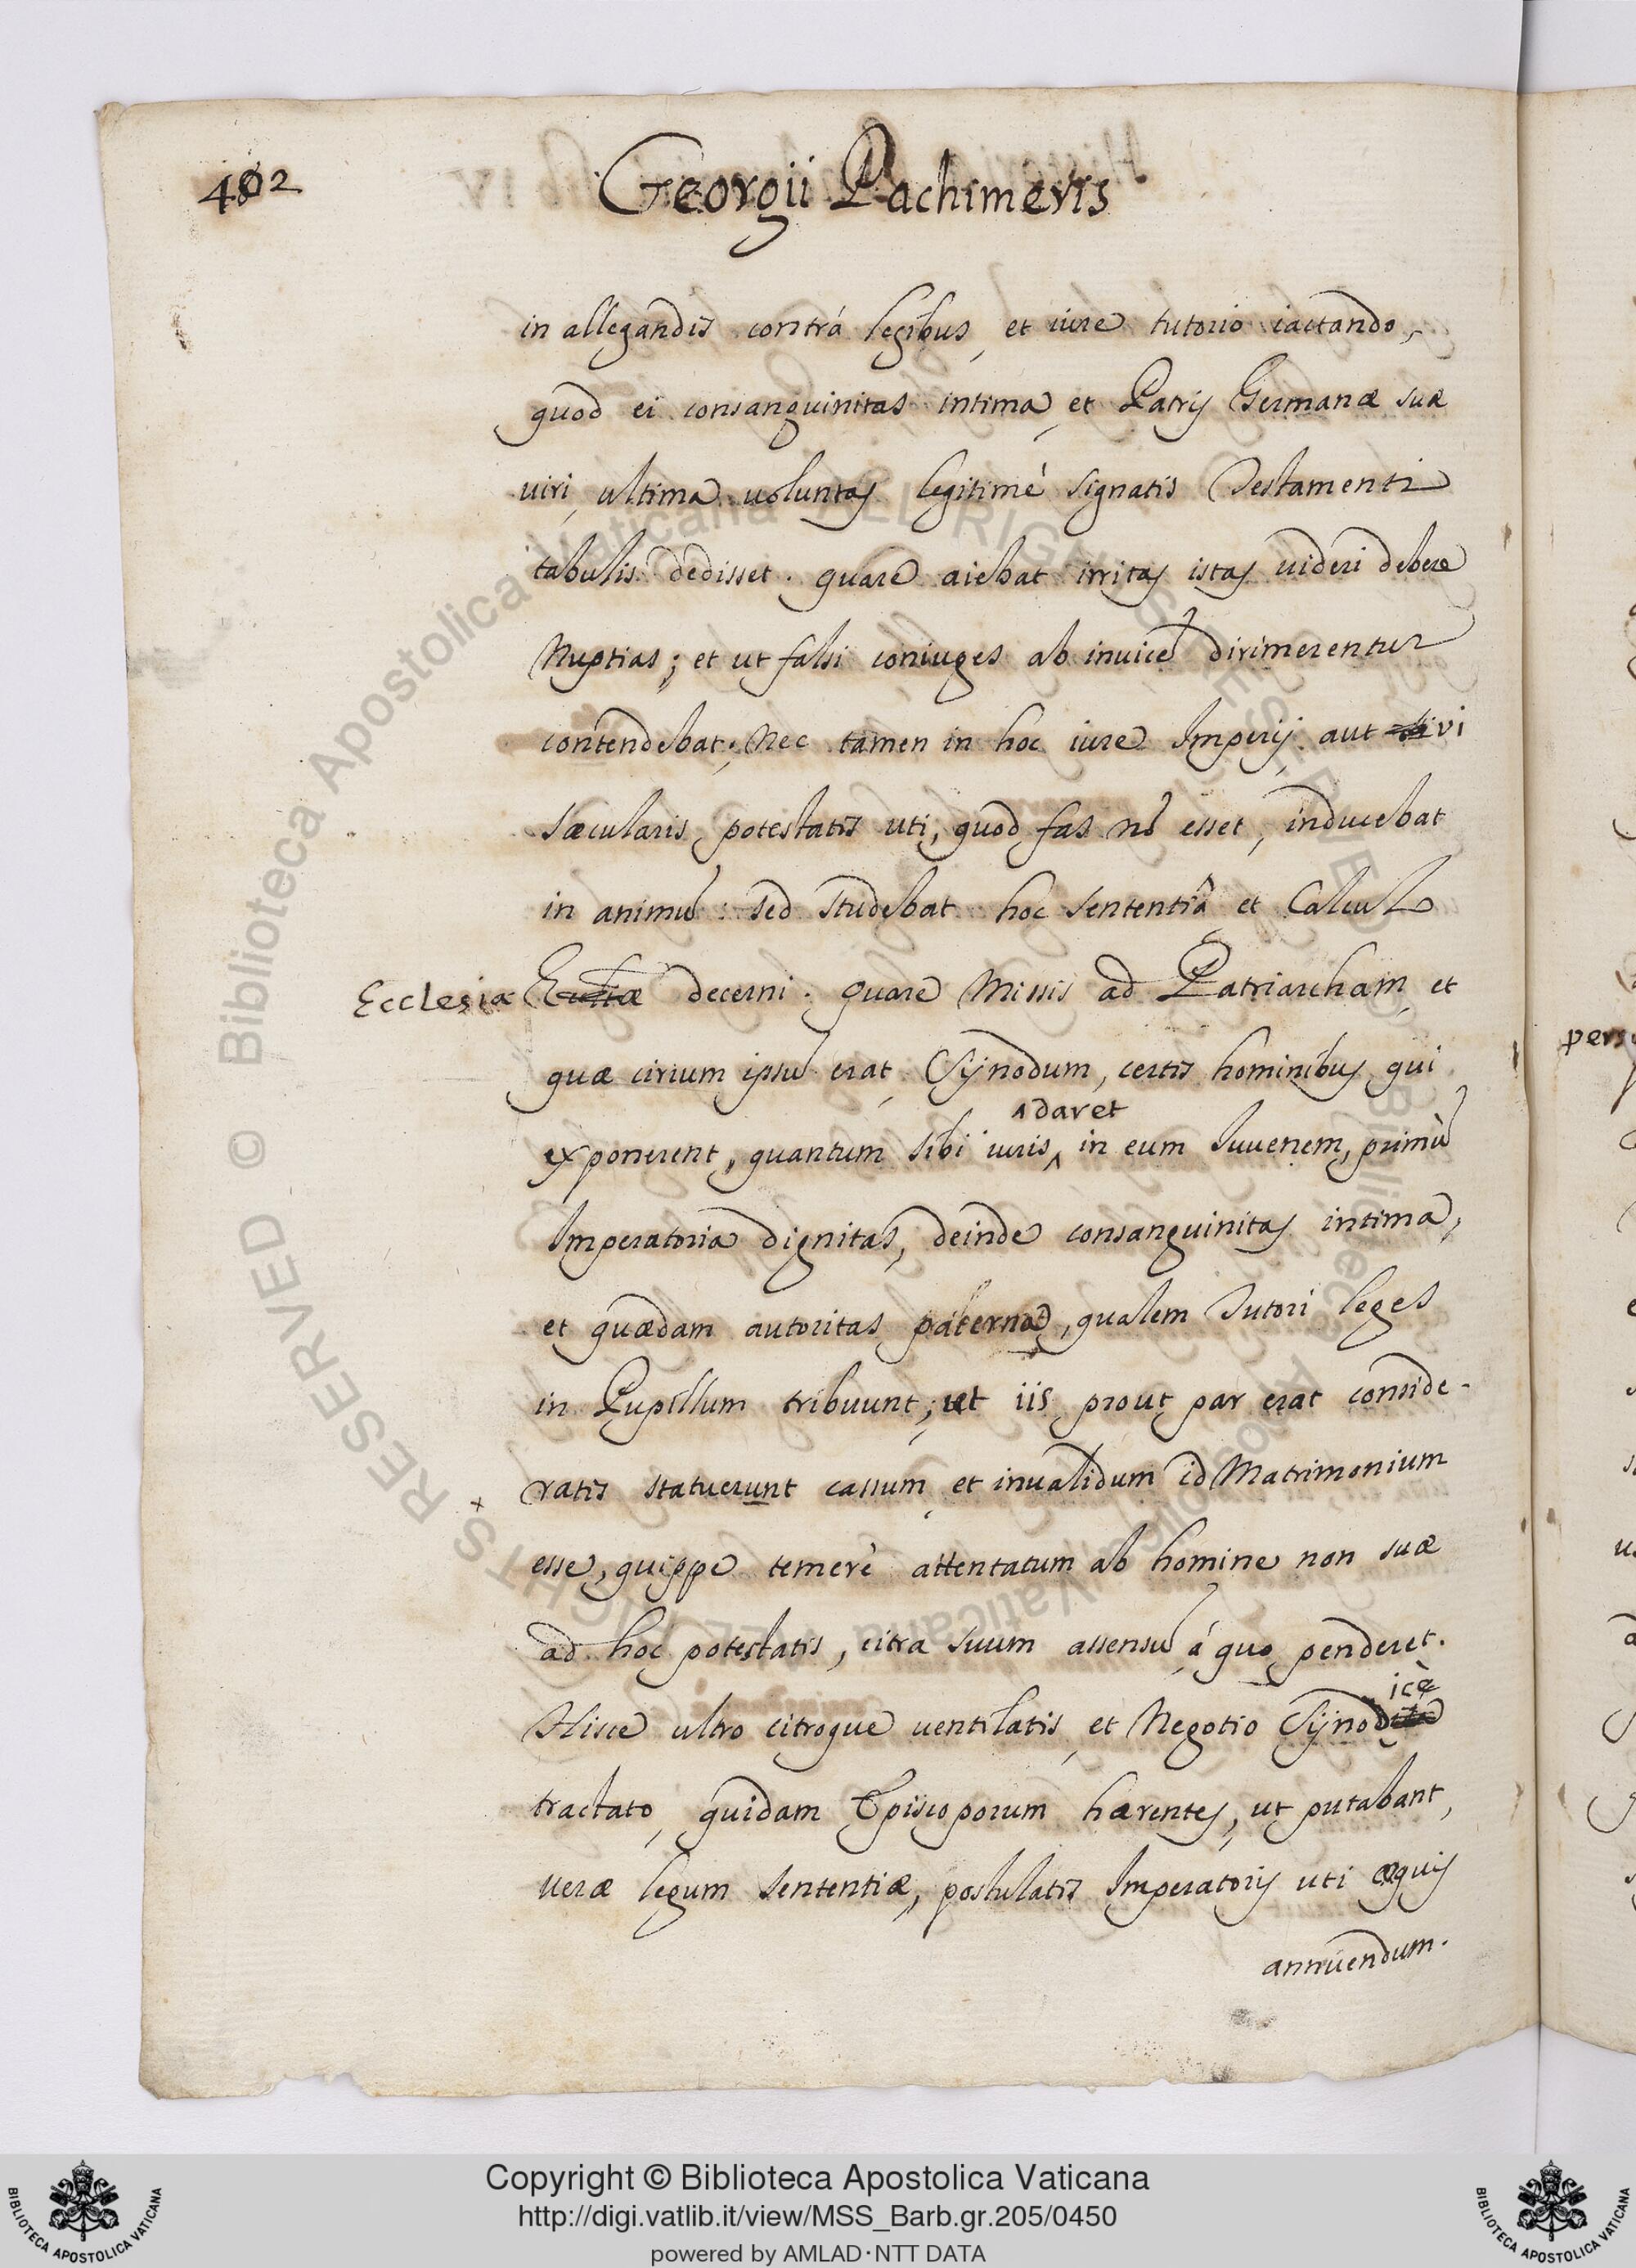 402
Georgii Pachimeris
in allegandis contrá legibus, et iure tutorio iactando,
quod ei consanguinitas intima, et Patris Germanæ suæ
uiri, ultima uoluntas legitimè signatis Testamenti
tabulis dedisset. quare aiebat irritas istas uideri debere
Nuptias; et ut falsi coniuges ab inuicē dirimerentur
contendebat; Nec tamen in hoc iure Imperij aut vi
sæcularis potestatis uti, quod fas nō esset, inducebat
in animū: sed studebat hoc sententiâ et Calculo
Ecclesiæ decerni. quare Missis ad Patriarcham, et
quæ cirium ipsū erat Synodum, certis hominibus qui
ʌ daret
exponerent, quantum sibi iuris ʌ in eum Iuuenem, primū
Imperatoria dignitas, deinde consanguinitas intima,
et quædam autoritas paterna, qualem Tutori leges
in Pupillum tribuunt; ut iis prout par erat conside-
+ ratis statuerunt cassum et inualidum id Matrimonium
esse, quippe temerè attentatum ab homine non suæ
ad hoc potestatis, citra suum assensū á quo penderet.
icè
Hisce ultro citroque uentilatis, et Negotio Synod
tractato, quidam Episcoporum hærentes, ut putabant,
ueræ legum sententiæ, postulatis Imperatoris uti æquis
annuendum.
pers
Copyright © Biblioteca Apostolica Vaticana
http://digi.vatlib.it/view/MSS_Barb.gr.205/0450
powered by AMLAD·NTT DATA
BIBLIOTECA APOSTOLICA VATICANA
BIBLIOTECA APOSTOLICA VATICANA
© Biblioteca Apostolica Vaticana ALL RIGHTS RESERVED